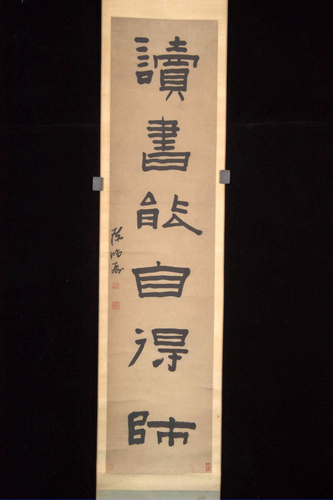 讀書能自得師
陳鴻壽